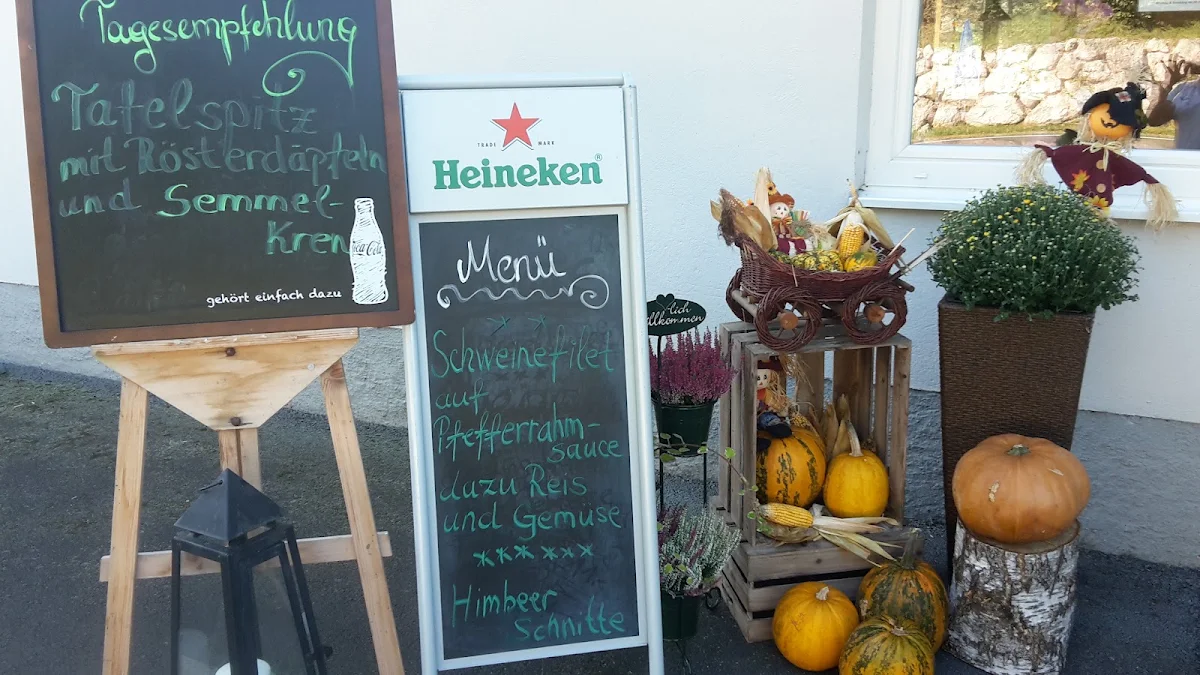 Tagesempfehlung
Tafelspitz
mit Rösterdäpfeln
und Semmel-
Kren
Coca-Cola
gehört einfach dazu
TRADE MARK
Heineken®
Menü
Schweinefilet
auf
Pfefferrahm-
sauce
dazu Reis
und Gemüse
Himbeer
Schnitte
lich
illkommen